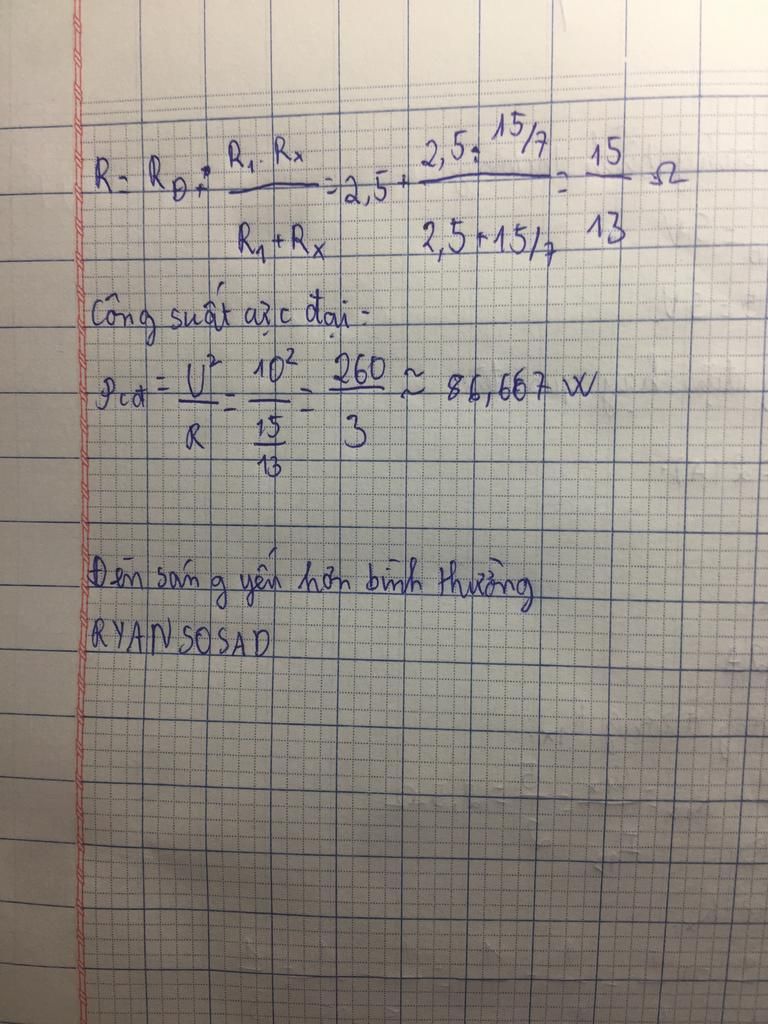 R = R_Đ + \frac{R_1 . R_x}{R_1 + R_x} = 2,5 + \frac{2,5 . 15/7}{2,5 + 15/7} = \frac{15}{13} Ω
Công suất cực đại :
P_{cđ} = \frac{U^2}{R} = \frac{10^2}{\frac{15}{13}} = \frac{260}{3} ≈ 86,667 W
Đèn sáng yếu hơn bình thường
RYANSOSAD